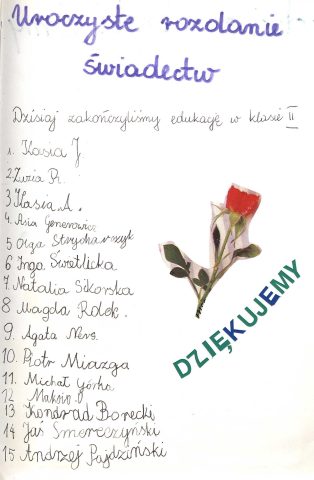 Uroczyste rozdanie
świadectw
Dzisiaj zakończyliśmy edukację w klasie II
1. Kasia J
2. Zuzia R.
3 Kasia A.
4. Asia Generowicz
5 Olga Strycharszyk
6 Inga Świetlicka
7. Natalia Sikorska
8 Magda Rolek.
9. Agata Ners.
10. Piotr Miazga
11. Michał Górka
12 Maksio.
13 Kondrad Borecki
14 Jaś Smereczyński
15 Andrzej Pajdziński
DZIĘKUJEMY